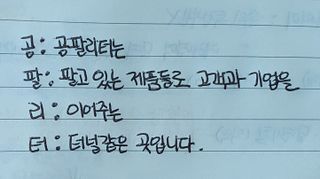 공 : 공팔리터는
팔 : 팔고 있는 제품들로 고객과 기업을
리 : 이어주는
터 : 터널같은 곳입니다.